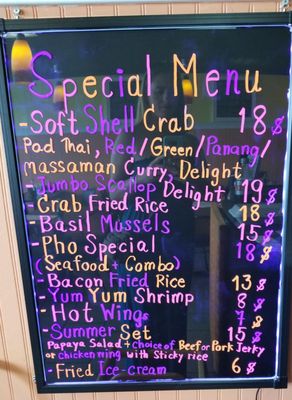 Special Menu
-Soft Shell Crab 18$
Pad Thai, Red/Green/Panang/
massaman Curry, Delight
-Jumbo Scallop Delight 19$
-Crab Fried Rice 18$
-Basil Mussels 15$
-Pho Special 18$
(Seafood + Combo)
-Bacon Fried Rice 13$
-Yum Yum Shrimp 8$
-Hot Wings 7$
-Summer Set 15$
Papaya Salad + choice of Beef or Pork Jerky
or Chicken wing with Sticky rice
-Fried Ice-cream 6$